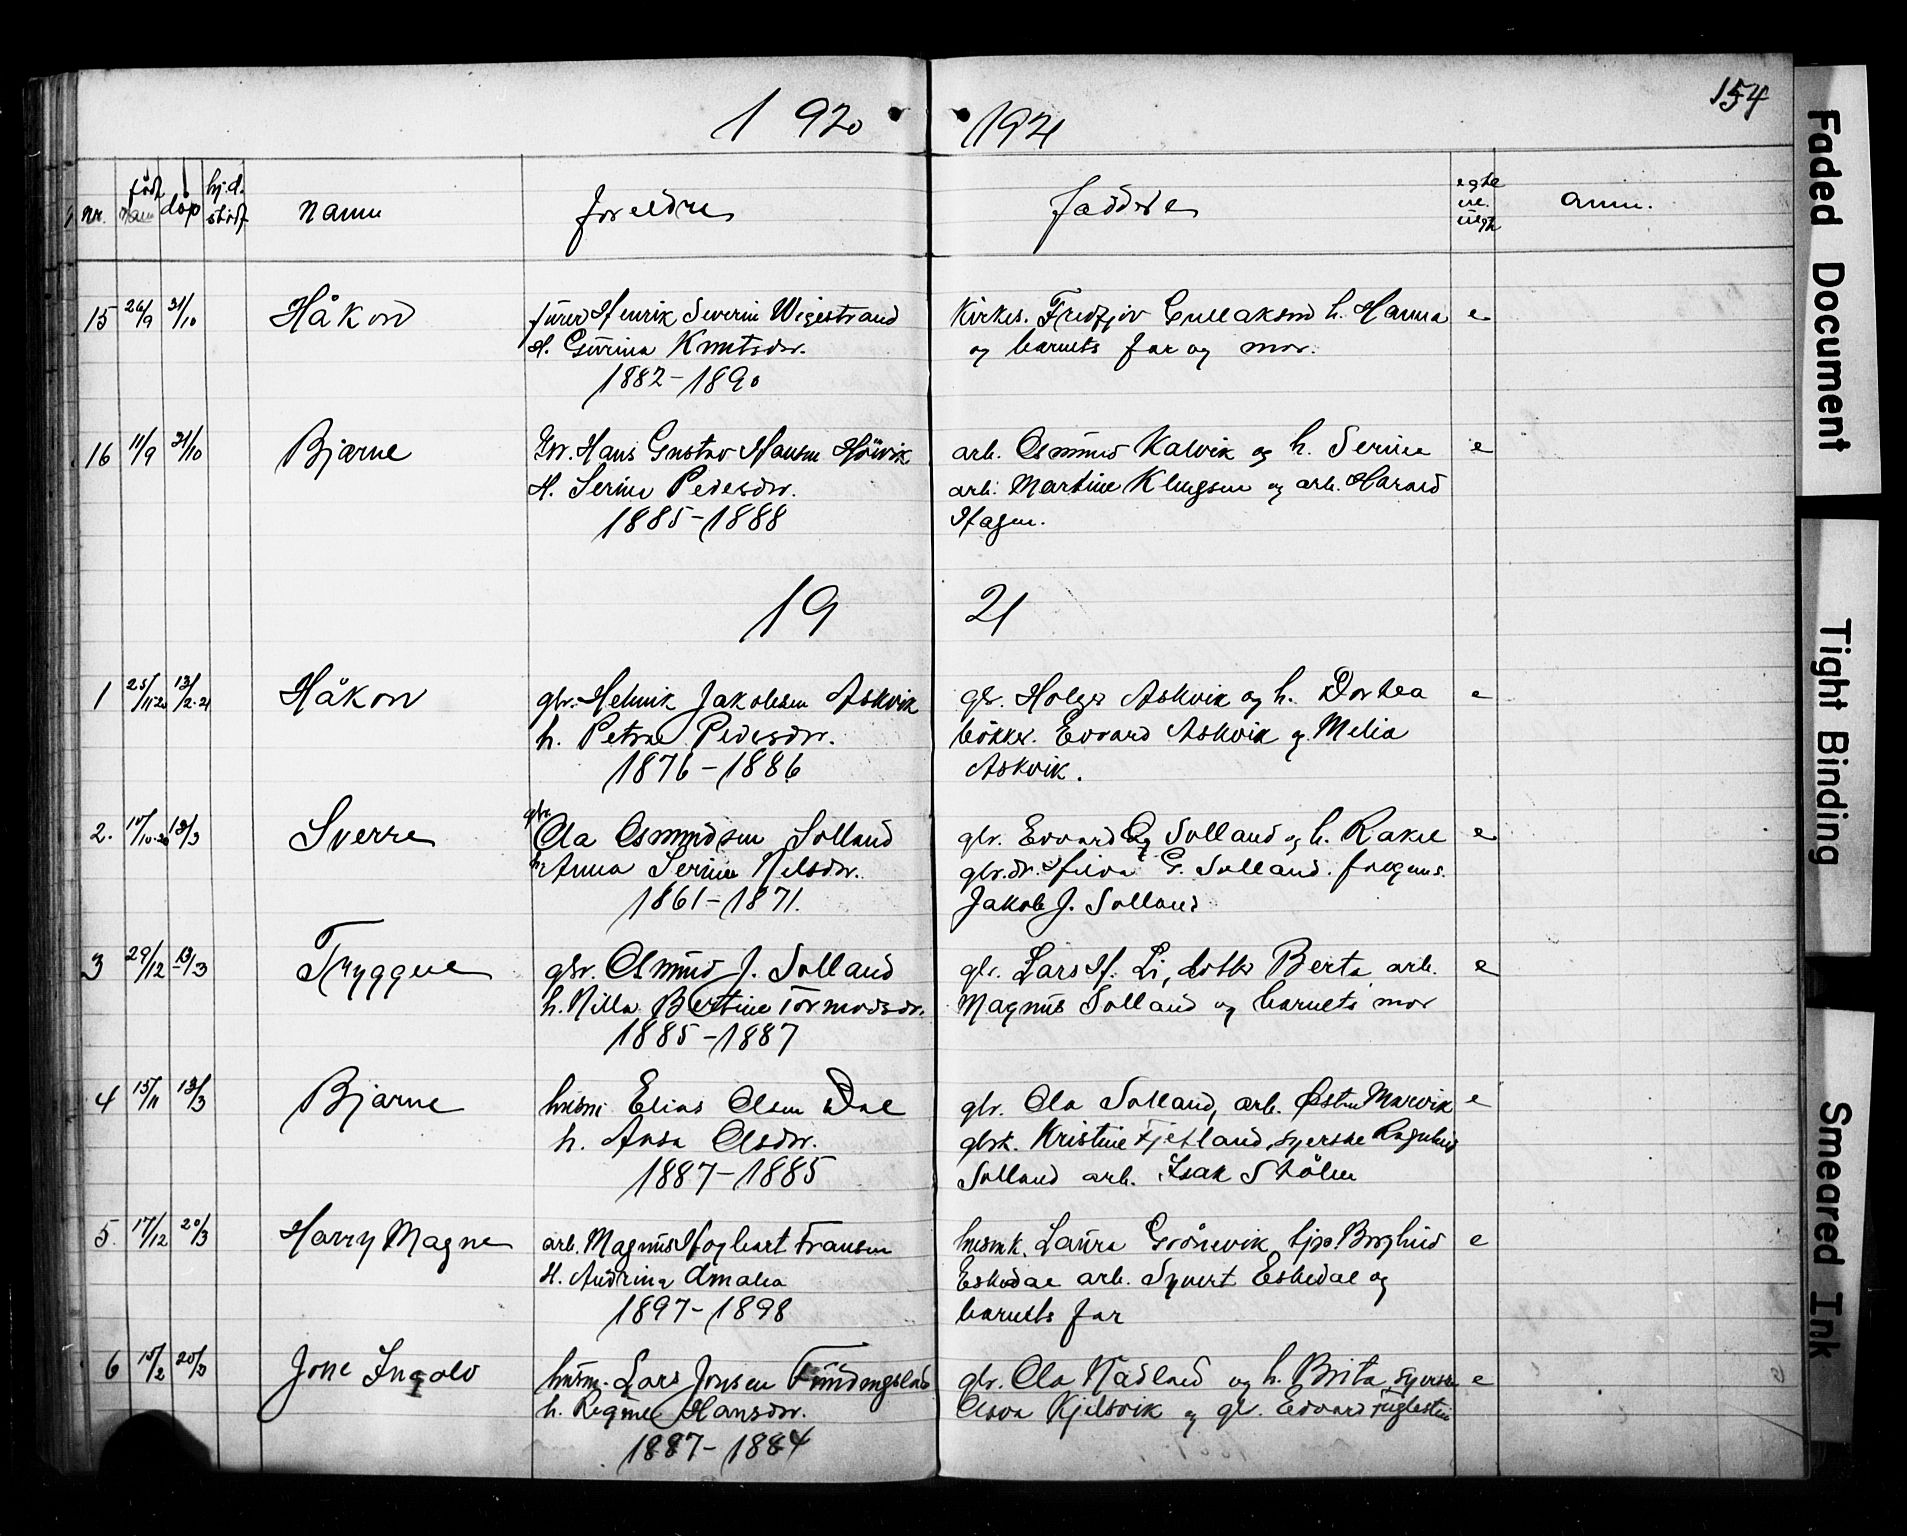 1920 1921 154
nr. født dåp hj.d. stadf. namn foreldre faddere egte el. uegte anm.
15 26/9 31/10 Håkon furer Henrik Severin Wigestrand Kirkes. Fredtjov Gullaksen h. Hanna e
H. Gurina Knutsdtr. og barnets far og mor.
1882-1890
16 11/9 31/10 Bjarne Gbr. Hans Gustav Hansen Høivik arb. Osmund Kalvik og h. Serine e
H. Serine Pedersdtr. arb. Martine Klungsen og arb. Harald
1885-1888 Hagen.
19 21
1 25/11-20 13/2-21 Håkon gbr. Helmik Jakobsen Askvik gbr. Holger Askvik og h. Dortea e
h. Petrine Pedersdtr. bøkker. Edvard Askvik og Melia
1876-1886 Askvik.
2. 10/10-20 13/3 Sverre gbr. Ola Osmundsen Solland gbr. Edvard O. Solland og h. Rakel e
h. Anna Serine Nelsdtr. gbr.dr. G. Solland.
1861-1871. Jakob J. Solland
3 29/12 13/3 Tryggve gbr. Osmund J. Solland gbr. Lars H. Li, dotter Berta arb. e
h. Nilla Bertine Tormodsdr. Magnus Solland og barnets mor
1885-1887
4 15/11 13/3 Bjarne husm. Elias Olsen Dal gbr. Ola Solland, arb. Østen Marvik e
h. Olsdtr. gbrk. Kristine Fjetland, syerske Ragnhild
1887-1885 Solland arb. Isak Stølen
5. 17/12 20/3 Harry Magne arb. Magnus Hogbart Fransen husmk. Laura Grønevik tjp. Borghild e
H. Andrina Amalia Eskedal arb. Syvert Eskedal og
1897-1898 barnets far
6 10/2 20/3 Jone Ingolv husm. Lars Jonsen Fundingsland gbr. Ola Nådland og h. Brita, syerske e
h. Regine Hansdtr. Olava Kjelsvik og gb. Edvard Fuglestein
1887-1884
Faded Document
Tight Binding
Smeared Ink